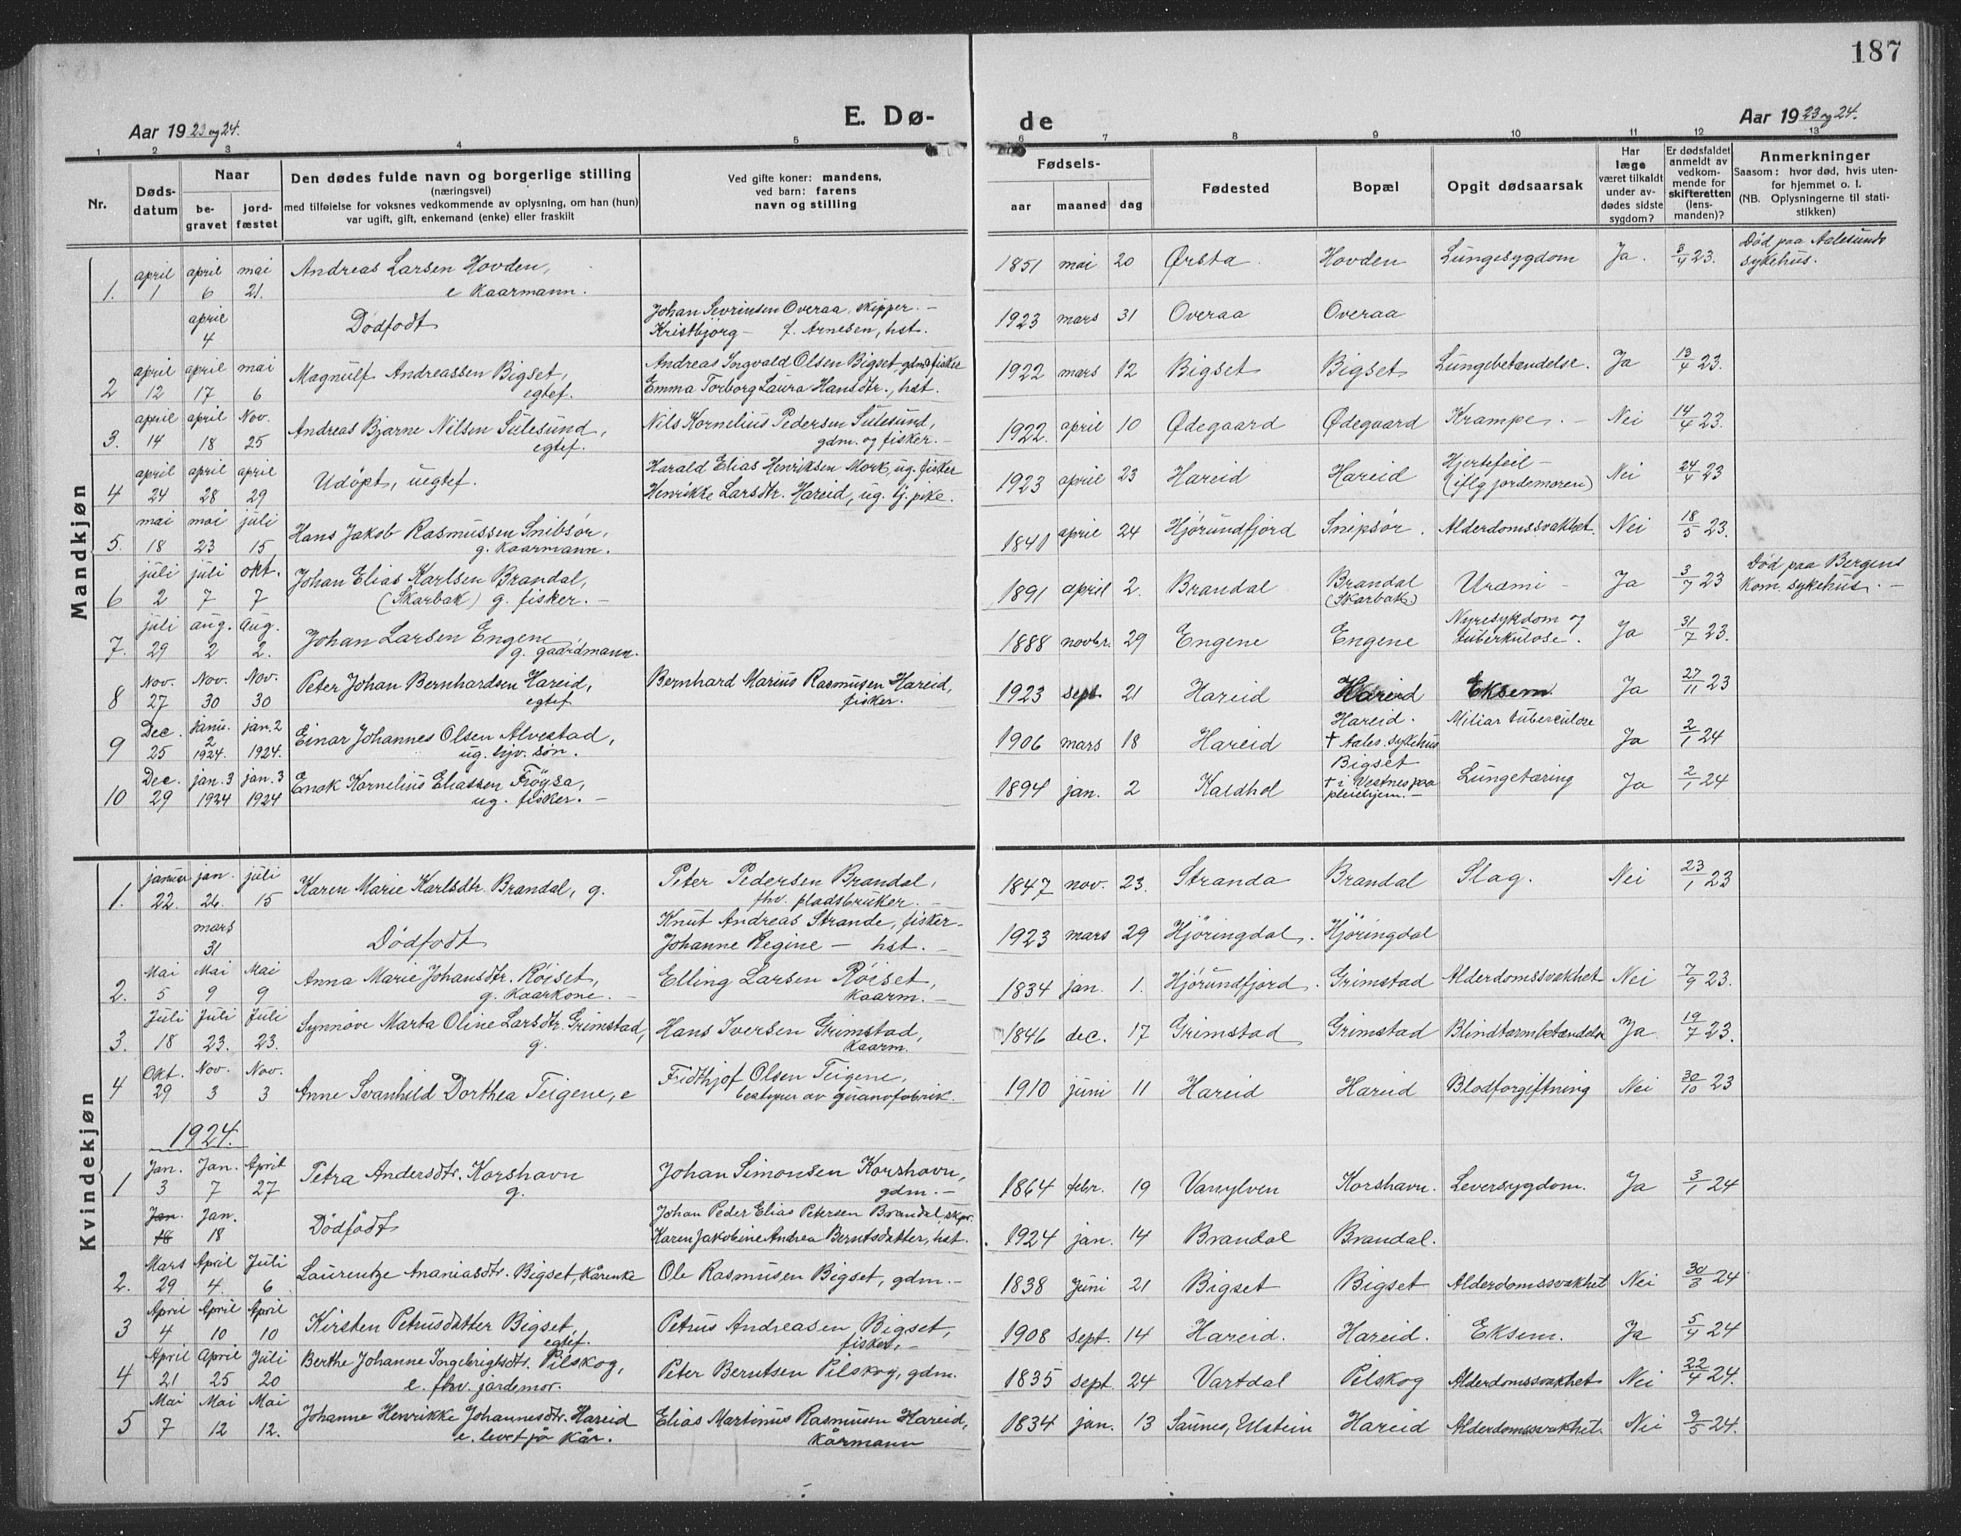 187
Aar 1923 og 24.
E. Dø-
de
Aar 1923 og 24.
1 2 3 4 5 6 7 8 9 10 11 12 13
Nr.
Døds-
datum
Naar
be-
gravet
jord-
fæstet
Den dødes fulde navn og borgerlige stilling
(næringsvei)
med tilføielse for voksnes vedkommende av oplysning, om han (hun)
var ugift, gift, enkemand (enke) eller fraskilt
Ved gifte koner: mandens,
ved barn: farens
navn og stilling
Fødsels-
aar maaned dag
Fødested
Bopæl
Opgit dødsaarsak
Har
læge
været tilkaldt
under av-
dødes sidste
sygdom?
Er dødsfaldet
anmeldt av
vedkom-
mende for
skifteretten
(lens-
manden)?
Anmerkninger
Saasom: hvor død, hvis uten-
for hjemmet o. l.
(NB. Oplysningerne til stati-
stikken)
Mandkjøn
1. april 1 april 6 mai 21. Andreas Larsen Hovden, 1851 mai 20 Ørsta Hovden Lungesygdom Ja. 3/4 23. Død paa Aalesunds
e kaarmann. sykehus.
april 4 Dødfødt Johan Sevrinsen Overaa, skipper. - 1923 mars 31 Overaa Overaa
Kristbjørg - f. Arnesen, hst.
2 april 12 april 17 mai 6 Magnulf Andreassen Bigset, Andreas Ingvald Olsen Bigset gdm & fisker 1922 mars 12 Bigset Bigset Lungebetændelse. Ja 13/4 23.
egtef. Emma Torborg Laura Hansdtr., hst.
3. april 14 april 18 Nov. 25 Andreas Bjarne Nilsen Sulesund, Nils Kornelius Pedersen Sulesund, 1922. april 10 Ødegaard Ødegaard Krampe. - Nei 14/4 23.
egtef. gdm. og fisker. -
4 april 24 april 28 april 29 Udøpt, uegtef. Harald Elias Henriksen Mork, ug. fisker 1923 april 23 Hareid Hareid Hjertefeil - Nei 24/4 23
Henrikke Larsdtr. Hareid, ug. tj. pike. (iflg jordemoren)
5. mai 18 mai 23 juli 15 Hans Jakob Rasmussen Snibsør, 1841 april 24 Hjørundfjord Snipsør. Alderdomssvakhet. Nei 18/5 23.
g. kaarmann.
6 juli 2 juli 7 okt. 7 Johan Elias Karlsen Brandal, 1891 april 2. Brandal Brandal Uræmi - Ja 3/7 23 Død paa Bergens
(Skarbak) g. fisker. - (Skarbak) Kom. sykehus. -
7. juli 29 aug. 2 aug. 2. Johan Larsen Engene 1888 novbr. 29 Engene Engene Nyresykdom og Ja 31/7 23.
g. gaardmann. tuberkulose.
8 Nov. 27 Nov. 30 Nov. 30 Peter Johan Bernhardsen Hareid, Bernhard Marius Rasmusen Hareid, 1923 sept. 21 Hareid Hareid Eksem Ja 27/11 23
egtef. fisker.
9 Dec. 25 janu. 2 1924. jan. 2 1924. Einar Johannes Olsen Alvestad, 1906 mars 18 Hareid Hareid. Miliar tuberculose Ja 2/1 24
ug. hjv. søn. † Aales. sykehus
10 Dec. 29 jan. 3 1924 jan. 3 1924 Enok Kornelius Eliassen Frøysa, 1894 jan. 2 Kaldhol Bigset Lungetæring Ja 2/1 24
ug. fisker. - † i Vestnes paa
pleiehjem. -
Kvindekjøn
1. januar 22. jan. 26. juli 15 Karen Marie Karlsdtr. Brandal, g. Peter Pedersen Brandal, 1847 nov. 23. Stranda Brandal Slag. Nei 23/1 23
fhv. pladsbruker. -
mars 31 Dødfødt Knut Andreas Strande, fisker - 1923 mars 29 Hjøringdal. Hjøringdal
Johanne Regine - hst. -
2. Mai 5 Mai 9 Mai 9 Anna Marie Johansdtr. Røiset, Elling Larsen Røiset, 1834 jan. 1. Hjørundfjord. Grimstad Alderdomssvakhet Nei 7/9 23.
g. kaarkone. - kaarm. -
3. Juli 18 Juli 23. Juli 23. Synnøve Marta Oline Larsdtr. Grimstad, Hans Iversen Grimstad, 1846 dec. 17 Grimstad Grimstad Blindtarmbetændelse Ja 19/7 23.
g. kaarm.
4 Okt. 29 Nov. 3 Nov. 3 Anne Svanhild Dorthea Teigene, e Fridthjof Olsen Teigene, 1910 juni 11 Hareid Hareid Blodforgiftning Nei 30/10 23
bestyrer av guanofabrik.
1924.
1 Jan. 3 Jan. 7 April 27 Petra Andersdtr. Korshavn Johan Simonsen Korshavn, 1864 febr. 19 Vanylven Korshavn. Leversygdom. Ja 3/1 24
g. gdm. -
Jan. 18 Jan. 18 Dødfødt Johan Peder Elias Petersen Brandal, skpr. 1924 jan. 14 Brandal Brandal.
Karen Jakobine Andrea Berntsdatter, hst.
2. Mars 29 April 4. Juli 6 Laurentze Ananiasdtr. Bigset, kårenke Ole Rasmusen Bigset, gdm. - 1838 juni 21 Bigset Bigset Alderdomssvakhet Nei 30/3 24
3 April 4 April 10 April 10 Kirsten Petrusdatter Bigset, Petrus Andreasen Bigset, 1908 sept. 14 Hareid. Hareid. Eksem. Ja 5/4 24
egtef. fisker, -
4 April 21 April 25 Juli 20 Berthe Johanne Ingebrigtsdtr. Pilskog, Peter Berntsen Pilskog, gdm. 1835 sept. 24 Vartdal Pilskog Alderdomssvakhet Nei 22/4 24.
e. fhv. jordemor.
5 Mai 7 Mai 12 Mai 12. Johanne Henrikke Johannesdtr. Hareid Elias Martinus Rasmusen Hareid, 1834 jan. 13 Saunes, Ulstein Hareid Alderdomssvakhet. Nei 9/5 24.
e. levet på kår. kårmann